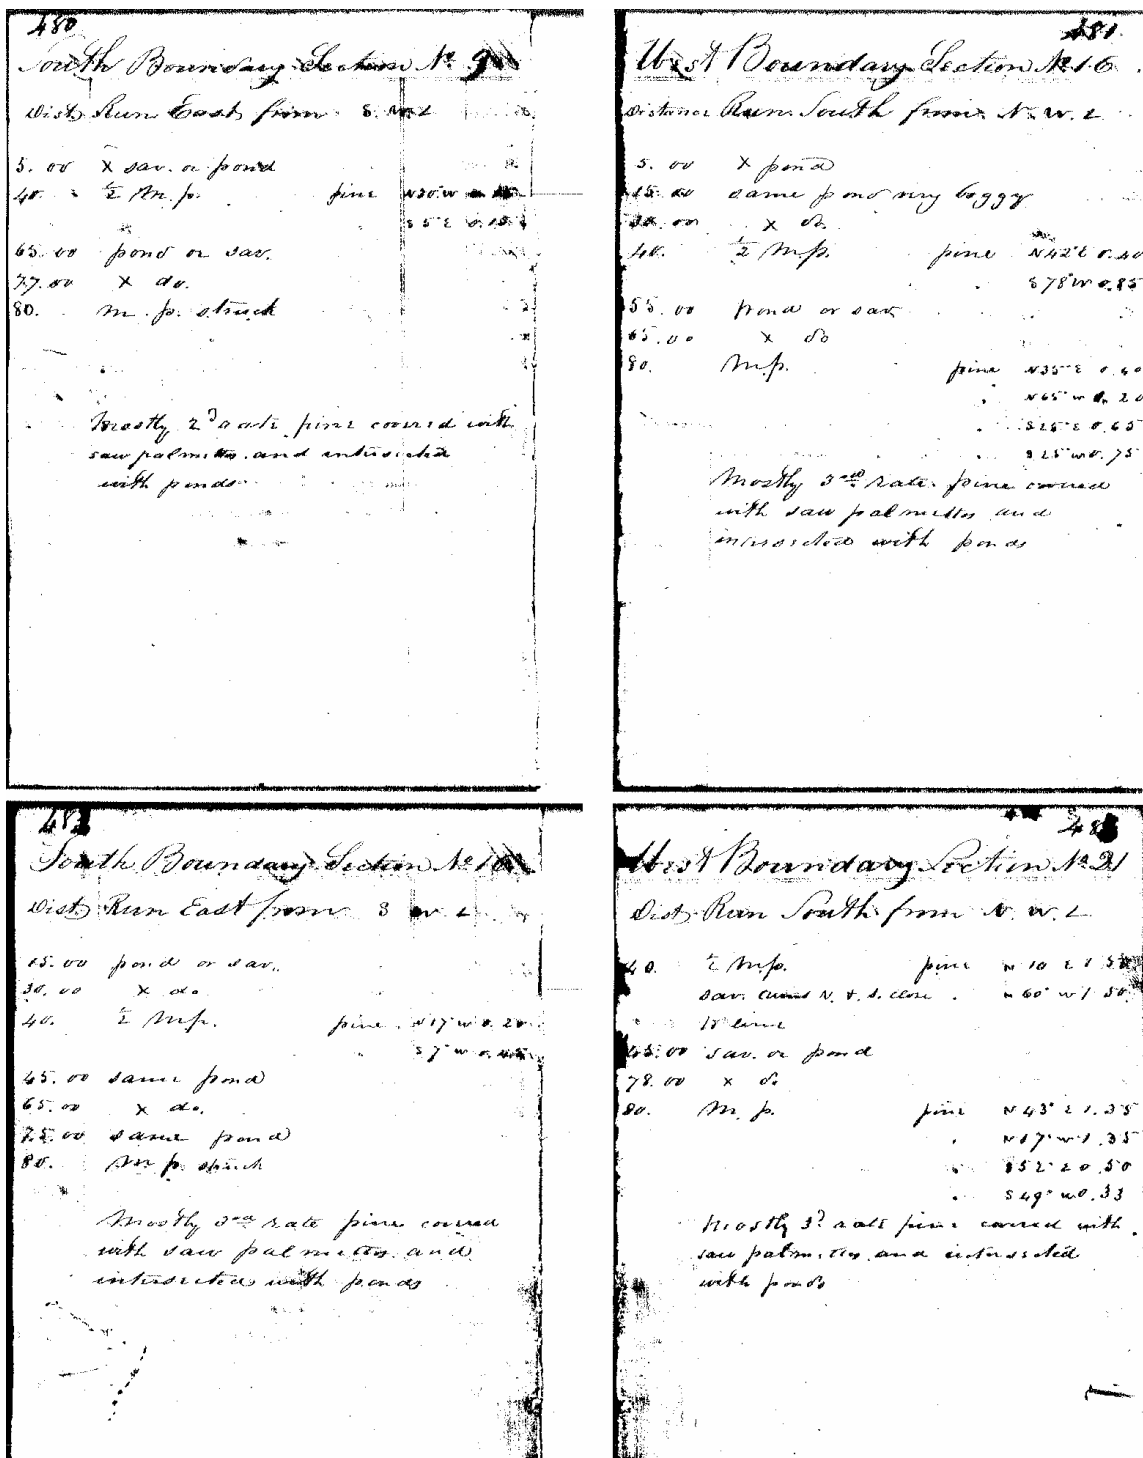 480
South Boundary Section No 9
Dist. Run East from S. W. L
5. 00 X sav. or pond
40. - ½ M. p. pine N 30° W
S 5° E
65. 00 pond or sav.
77. 00 X do.
80. M. p. struck
Mostly 2d rate pine covered with
saw palmetto and intersected
with ponds
481.
West Boundary Section No 16
Distance Run South from N. W. L
5. 00 X pond
15. 00 same pond very boggy
00 X do.
40. ½ M.p. pine N 42° E 0.40
S 78° W 0.85
55. 00 pond or sav.
65. 00 X do
80. M.p. pine N 35° E 0.40
N 65° W 0. 20
S 25° E 0.65
S 25° W 0.75
Mostly 3rd rate pine covered
with saw palmetto and
intersected with ponds
482
South Boundary Section No 16
Dist. Run East from S W L
15. 00 pond or sav.
30. 00 X do.
40. ½ M.p. pine N 17° W 0. 20
S 7° W 0.
45. 00 same pond
65. 00 X do.
75. 00 same pond
80. M. p. struck
Mostly 3rd rate pine covered
with saw palmetto and
intersected with ponds
48
West Boundary Section No 21
Dist. Run South from N. W. L
40. ½ M.p. pine N 10 E 1.50
sav. N. & S. close N 60° W 1.50
line
45. 00 sav. or pond
78. 00 X do
80. M. p. pine N 43° E 1.35
N 17° W 1.35
S 52° E 0.50
S 49° W 0.33
Mostly 3d rate pine covered with
saw palmetto and intersected
with ponds